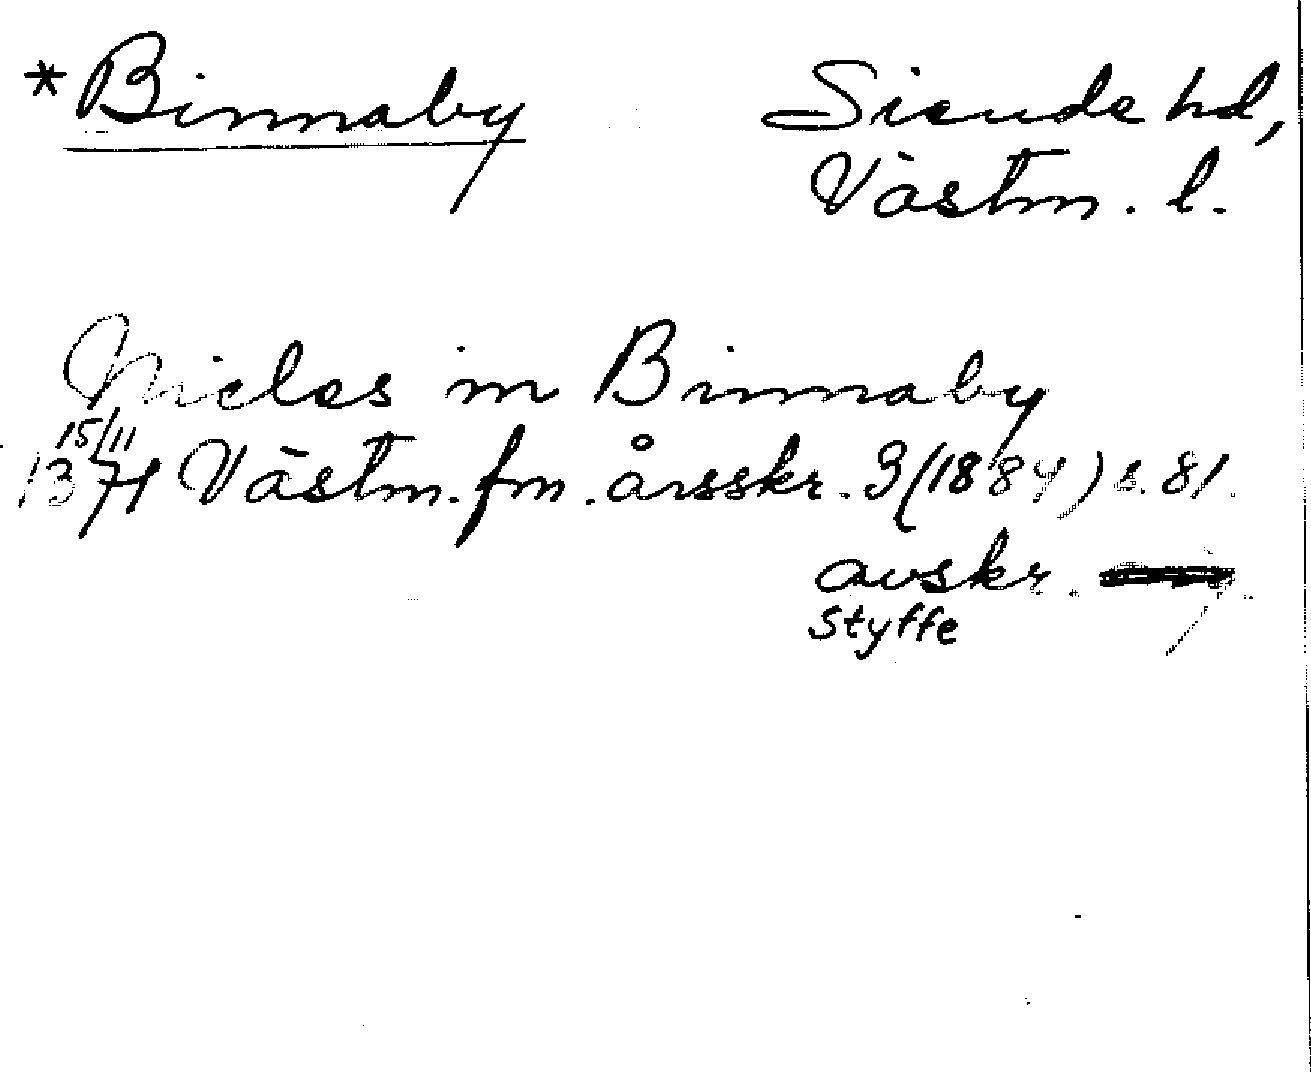 *Binnaby Siende hd,
Västm. l.
Niclas in Binnaby
15/11
1371 Västm. fm. årsskr. 3 (1884) s. 81.
avskr.
Styffe